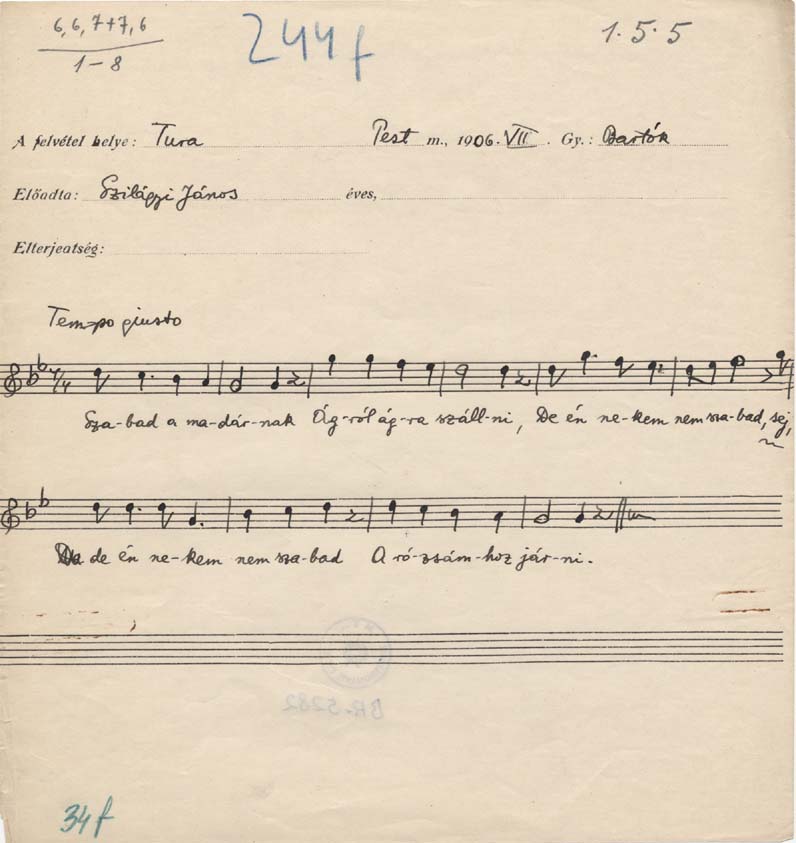 6, 6, 7+7, 6
1–8
244f
1. 5. 5
A felvétel helye: Tura Pest m., 1906. VII. Gy.: Bartók
Előadta: Szilágyi János éves,
Elterjedtség:
Tempo giusto
Sza-bad a ma-dár-nak Ág-ról ág-ra száll-ni, De én ne-kem nem sza-bad, sej,
de én ne-kem nem sza-bad A ró-zsám-hoz jár-ni.
BR. 5282
34f